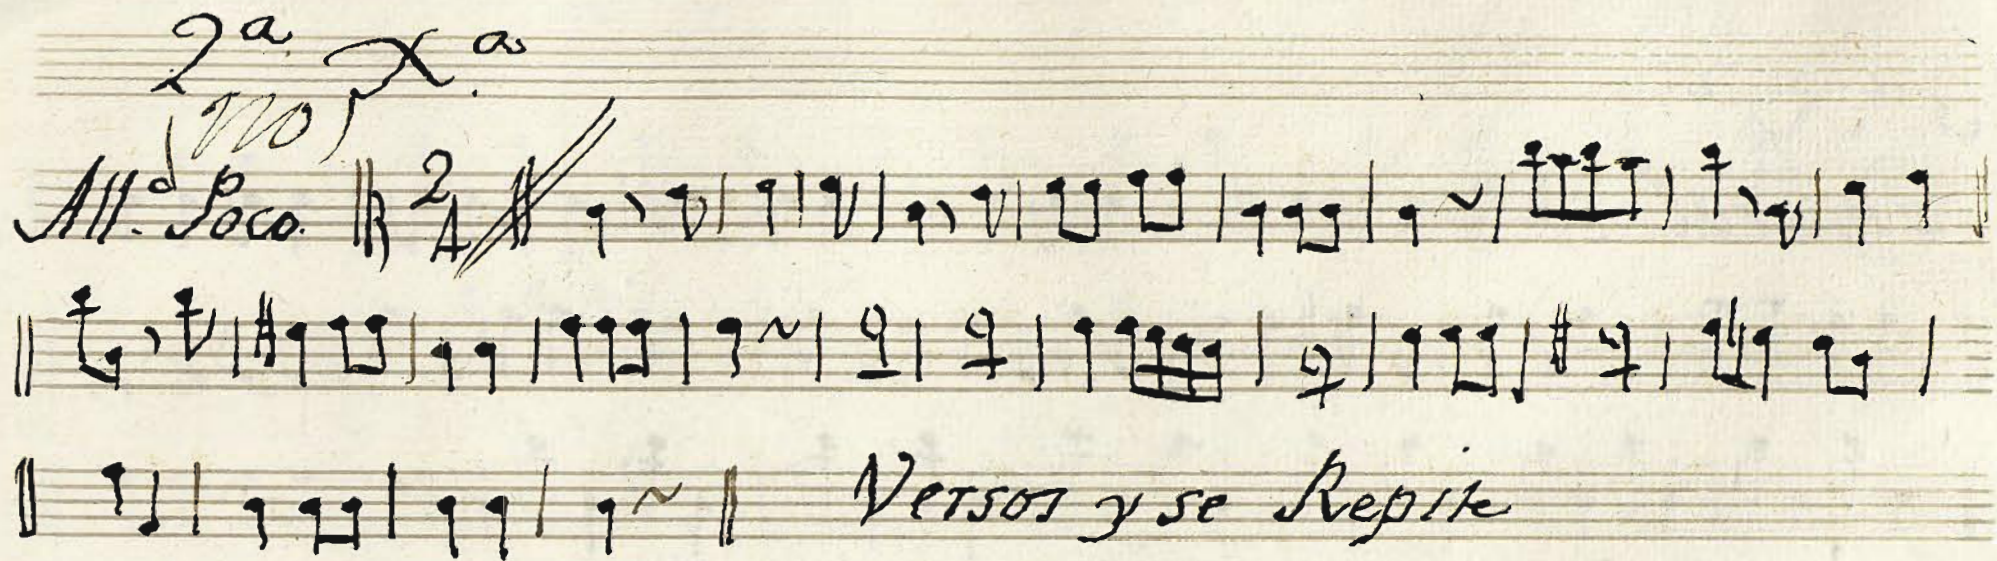 2ª Xª
no
All.º Poco. 2 4
Versos y se Repite